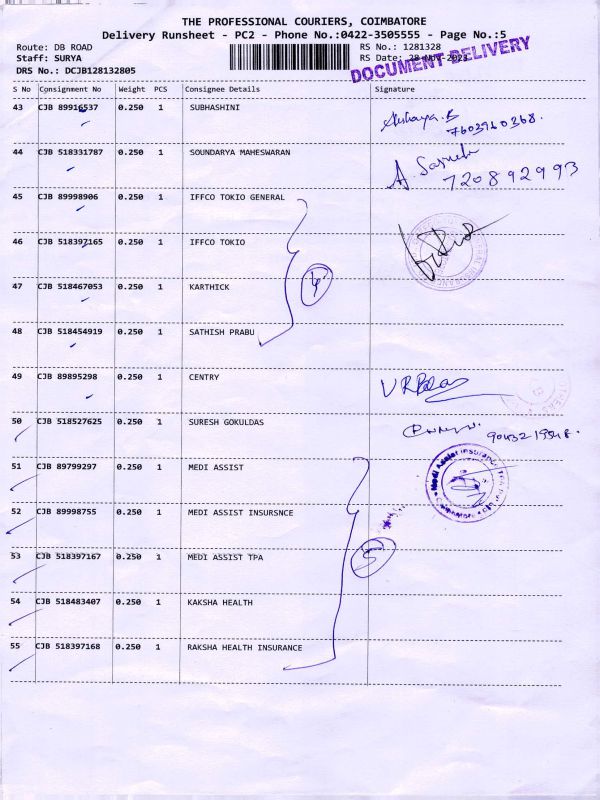 THE PROFESSIONAL COURIERS, COIMBATORE
Delivery Runsheet - PC2 - Phone No.:0422-3505555 - Page No.:5
Route: DB ROAD RS No.: 1281328
Staff: SURYA RS Date: 28-NOV-2023
DRS No.: DCJB128132805
DOCUMENT DELIVERY
S No Consignment No Weight PCS Consignee Details Signature
43 CJB 89916537 0.250 1 SUBHASHINI
7603960368.
44 CJB 518331787 0.250 1 SOUNDARYA MAHESWARAN
720892993
45 CJB 89998906 0.250 1 IFFCO TOKIO GENERAL
46 CJB 518397165 0.250 1 IFFCO TOKIO
4
47 CJB 518467053 0.250 1 KARTHICK
48 CJB 518454919 0.250 1 SATHISH PRABU
49 CJB 89895298 0.250 1 CENTRY
50 CJB 518527625 0.250 1 SURESH GOKULDAS
51 CJB 89799297 0.250 1 MEDI ASSIST
Medi Assist Insurance TPA Pvt Ltd
Coimbatore
52 CJB 89998755 0.250 1 MEDI ASSIST INSURSNCE
53 CJB 518397167 0.250 1 MEDI ASSIST TPA
5
54 CJB 518483407 0.250 1 KAKSHA HEALTH
55 CJB 518397168 0.250 1 RAKSHA HEALTH INSURANCE